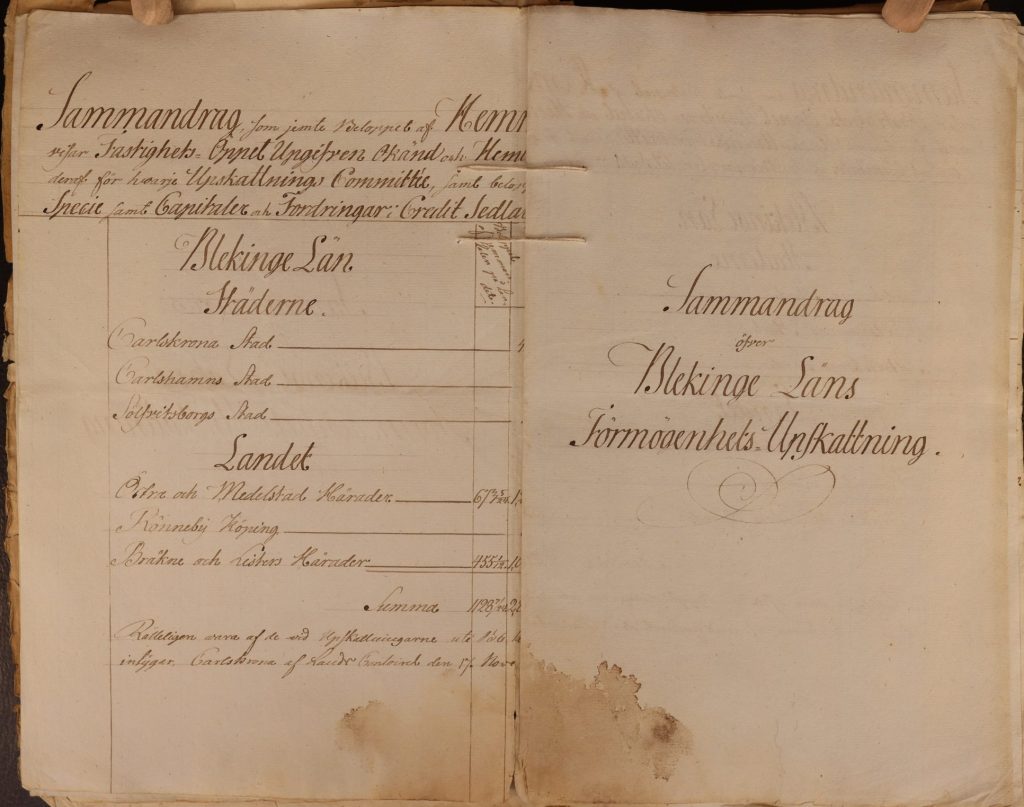 Sammandrag, som jemte Beloppet af Hemm
visar Fastighets- Oppet Upgifven Okänd och Hem
deraf för hvarje Upskattnings Committée, samt belop
Specie samt Capitaler och Fordringar i Credit Sedlar
Blekinge Län
Städerne.
Carlskrona Stad
Carlshamns Stad
Sölfvitsborgs Stad
Landet
Östra och Medelstad Härader 67
Rönneby Köping
Bräkne och Listers Härader 455
Summa 1128
vara af de vid Upskattningarne
intyger. Carlskrona af Lands Contoiret den 5 Nov
Sammandrag
öfver
Blekinge Läns
Förmögenhets-Upskattning.